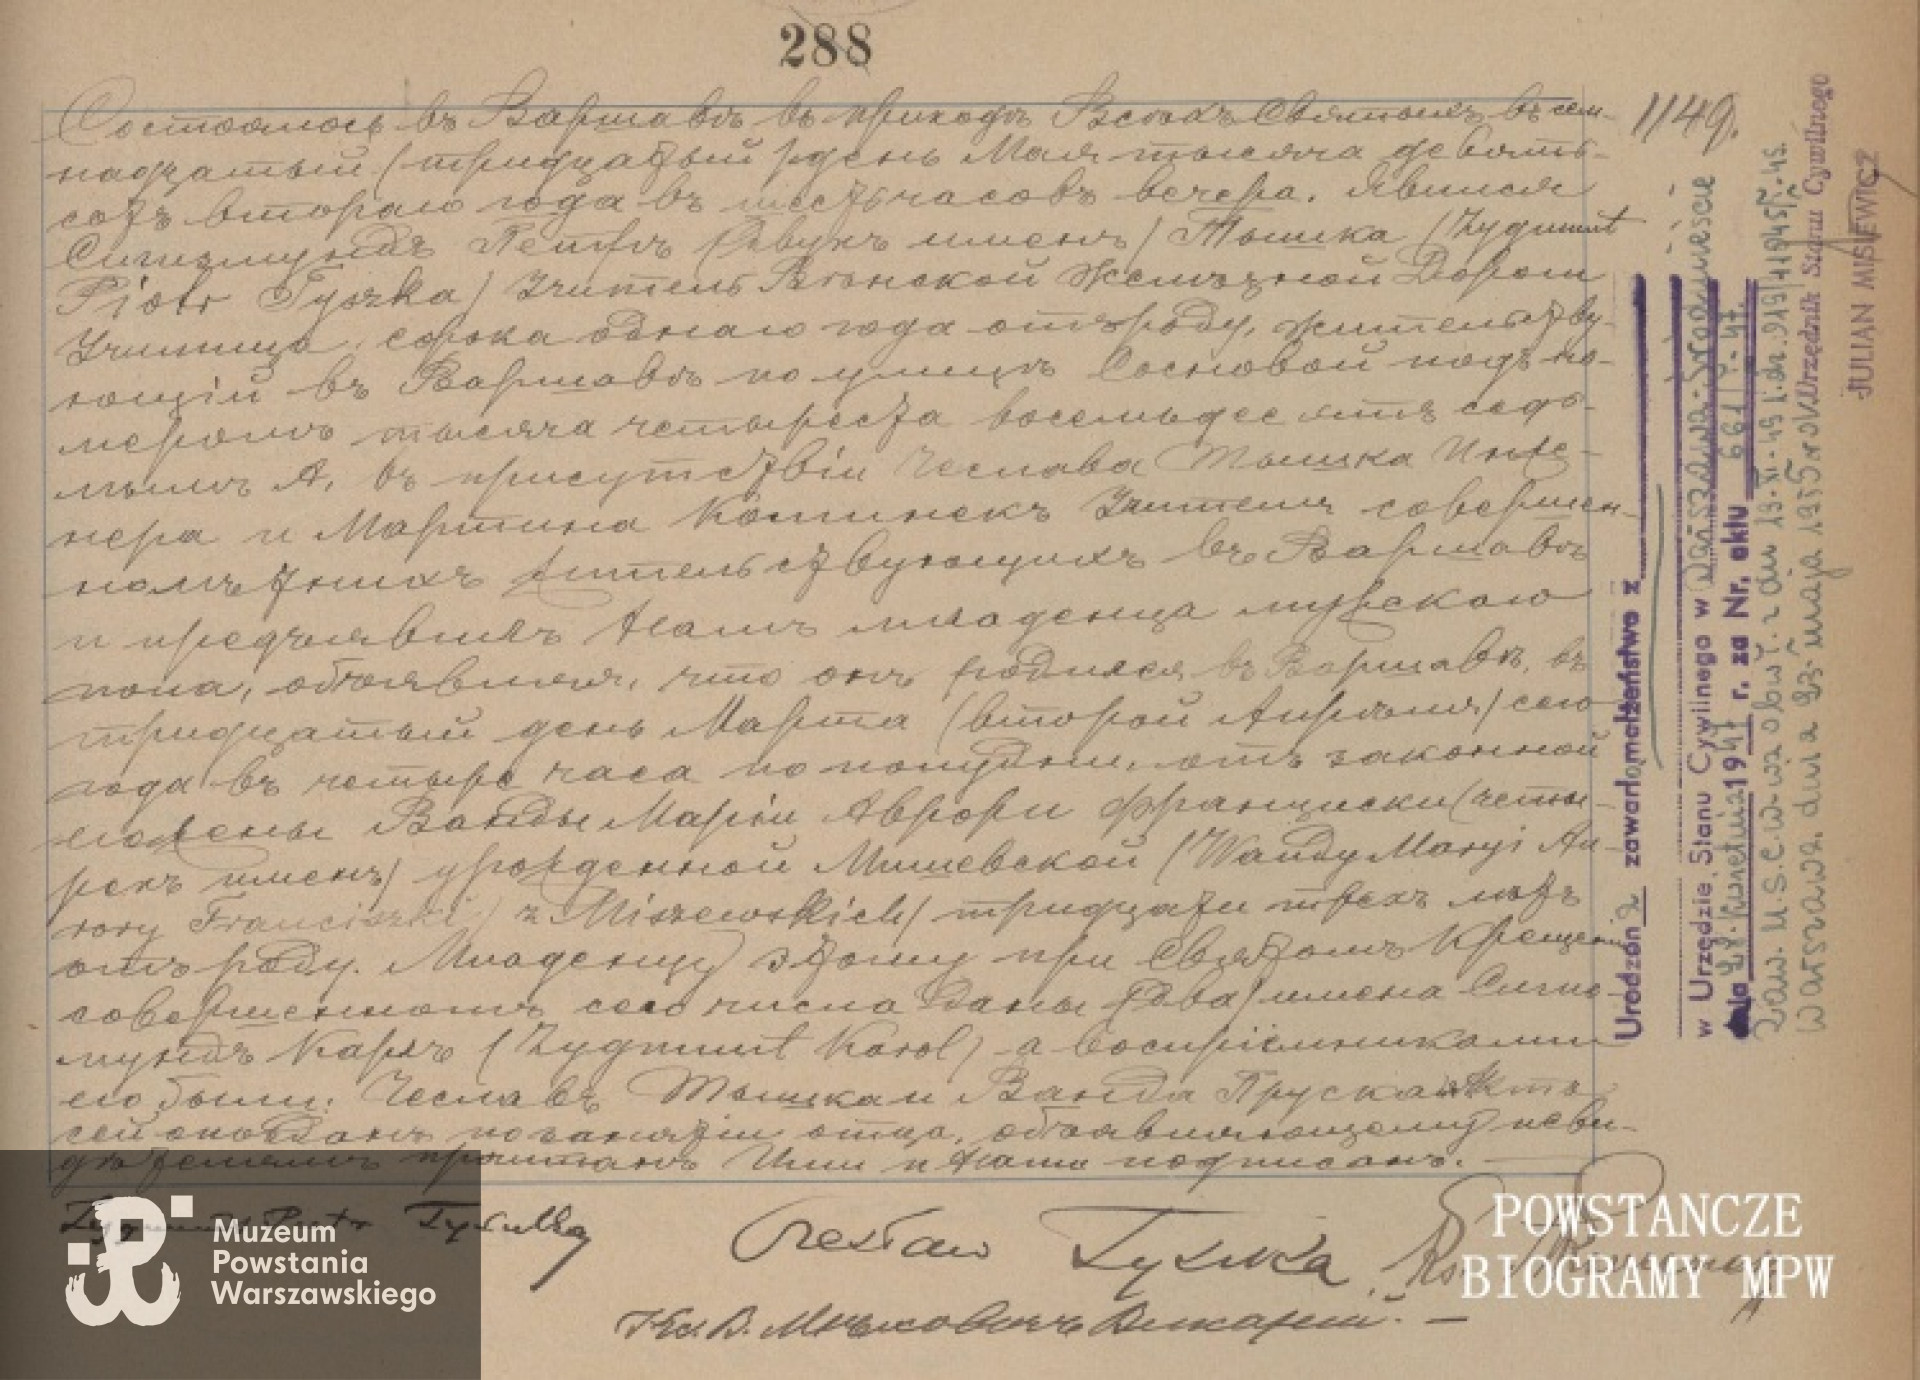 288
1149.
Состоялось въ Варшавѣ въ приходѣ Всѣхъ Святыхъ въ сем-
надцатый (тридцатый) день Мая тысяча девять-
сотъ второго года въ шесть часовъ вечера. Явился
Сигизмундъ Петръ (двухъ именъ) Тышка (Zygmunt
Piotr Tyszka) Учитель Вѣнской Желѣзной Дороги
Училища, сорока одного года отъ роду, жительству-
ющій въ Варшавѣ по улицѣ Сосновой подъ но-
меромъ тысяча четыреста восемьдесятъ седь-
мымъ А, въ присутствіи Чеслава Тышка Инже-
нера и Мартина Коминекъ Учителя совершен-
нолѣтнихъ жительствующихъ въ Варшавѣ
и предъявилъ Намъ младенца мужского
пола, объявляя, что онъ родился въ Варшавѣ, въ
тридцатый день Марта (второй Апрѣля) сего
года въ четыре часа по полудни, отъ законной
его жены Ванды Маріи Авроры Франциски (четы-
рехъ именъ) урожденной Мишевской (Wandy Maryi Au-
rory Franciszki z Miszewskich) тридцати трехъ лѣтъ
отъ роду. Младенцу этому при Святомъ Крещеніи
совершенномъ сего числа даны (два) имена Сигиз-
мундъ Карлъ (Zygmunt Karol) а воспріемниками
его были: Чеславъ Тышка и Ванда Пруска. Актъ
сей опозданъ по занятіи отца, объявляющему и сви-
дѣтелямъ прочитанъ Ими и Нами подписанъ.
Zygmunt Piotr Tyszka
Czesław Tyszka
Кс. В. Викарій.
Urodzony zawarł małżeństwo z
w Urzędzie Stanu Cywilnego w Warszawa-Śródmieście
dnia 28 kwietnia 1947 r. za Nr. aktu 661/I-47.
Warszawa, dnia 23 maja 1955 r. Urzędnik Stanu Cywilnego
JULIAN MISIEWICZ
Muzeum
Powstania
Warszawskiego
POWSTAŃCZE
BIOGRAMY MPW